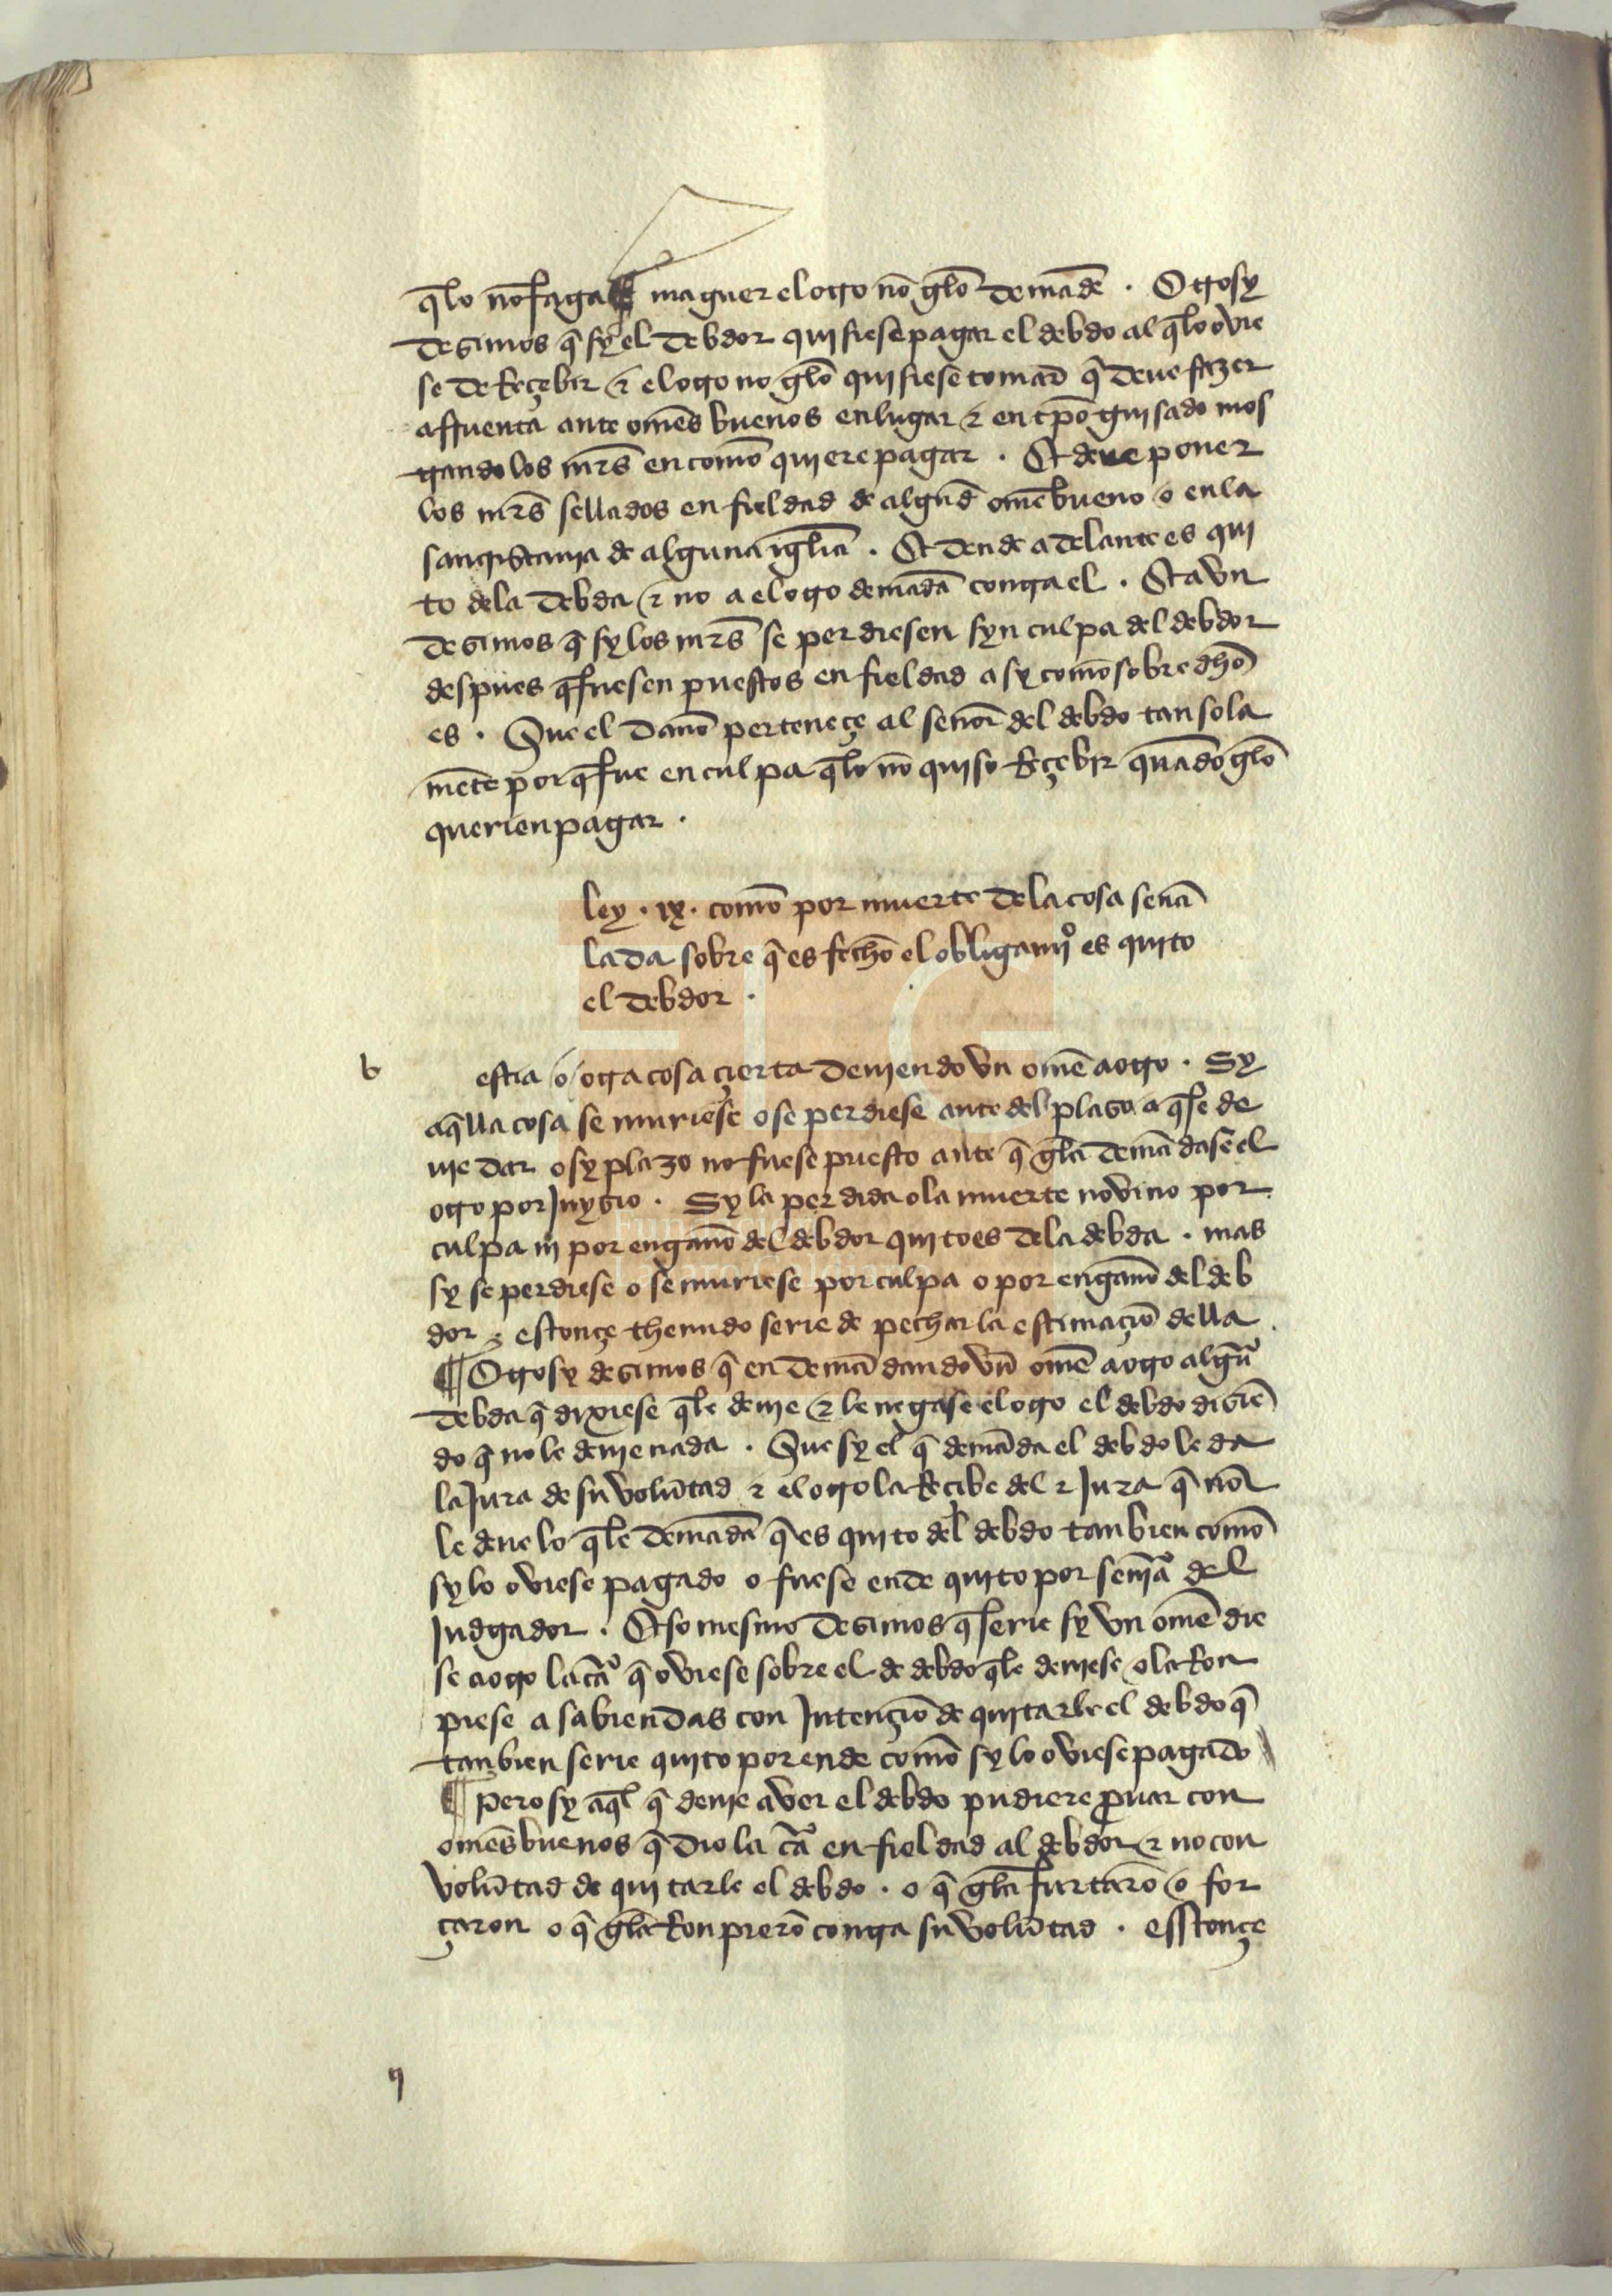 q̄lo nōfaga maguer elotro nō gelo demādē . Otrosy
desimos q̄ sy el debdor quisiese pagar el debdo al q̄lo ovie
se de Reçebir ⁊ elotro no gelo quisiese tomar q̄ deue fazer
affruenta ante omēs buenos enlugar ⁊ en tp̄o guisado mos
trando los mrs̄ en comō quiere pagar . Et deue poner
los mrs̄ sellados en fieldad de algund omē bueno o enla
sanqristania de alguna igl̄ia . Et dende adelante es qui
to dela debda ⁊ no a elotro demāda contra el . Et avn
desimos q̄ sy los mrs̄ se perdiesen syn culpa del debdor
despues q̄ fuesen puestos en fieldad asy comō sobredh̄o
es . Que el daño perteneçe al señor del debdo tan sola
mēte por q̄ fue en culpa q̄lo nō quiso Reçebir quādo gelo
querien pagar .
ley . ix . comō por muerte dela cosa señā
lada sobre q̄ es fecho el obligamjº es quito
el debdor .
b
estia o otra cosa çierta deuiendo vn omē aotro . Sy
aq̄lla cosa se muriese o se perdiese ante del plaso a q̄ se de
uie dar o sy plazo no fuese puesto ante q̄ gela demādase el
otro por Juysio . Sy la perdida o la muerte nō vino por
culpa nj por engaño del debdor quito es dela debda . mas
sy se perdiese o se muriese por culpa o por engaño del deb
dor estonçe thenudo serie de pechar la estimaçiō della .
¶ Otrosy desimos q̄ en demādando vn̄ omē aotro algūa
debda q̄ dixiese q̄le deuie ⁊ le negase elotro el debdo disiē
do q̄ no le deuie nada . Que sy el q̄ demāda el debdo le da
la Jura de su volūtad ⁊ elotro la Reçibe del ⁊ Jura q̄ nō
le deue lo q̄le demāda q̄ es quito del debdo tan bien comō
sy lo oviese pagado o fuese ende quito por senīa del
Judgador . Eso mesmo desimos q̄ serie sy vn omē die
se aotro la cāª q̄ oviese sobre el de debdo q̄le deuiese o la Ron
piese a sabiendas con Jntençiō de quitarle el debdo q̄
tanbien serie quito por ende comō sy lo oviese pagado
¶ Pero sy aq̄l q̄ deuie aver el debdo pudiere prouar con
omēs buenos q̄ dio la cāª en fieldad al debdor ⁊ no con
volūtad de quitarle el debdo . o q̄ gela furtarō o for
çaron o q̄ gela Ronpierō contra su volūtad . esstonçe